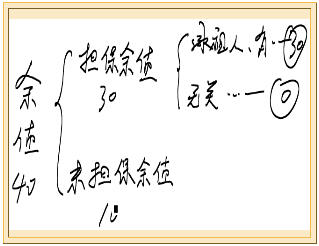 余值40
担保余值
30
承租人、有……30
无关……0
未担保余值
10